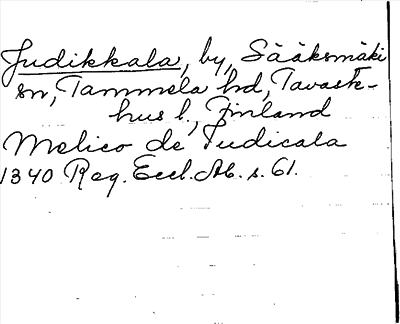 Judikkala, by, Sääksmäki
sn, Tammela hd, Tavaste-
hus l., Finland
Melico de Judicala
1340 Reg. Eccl. Ab. s. 61.